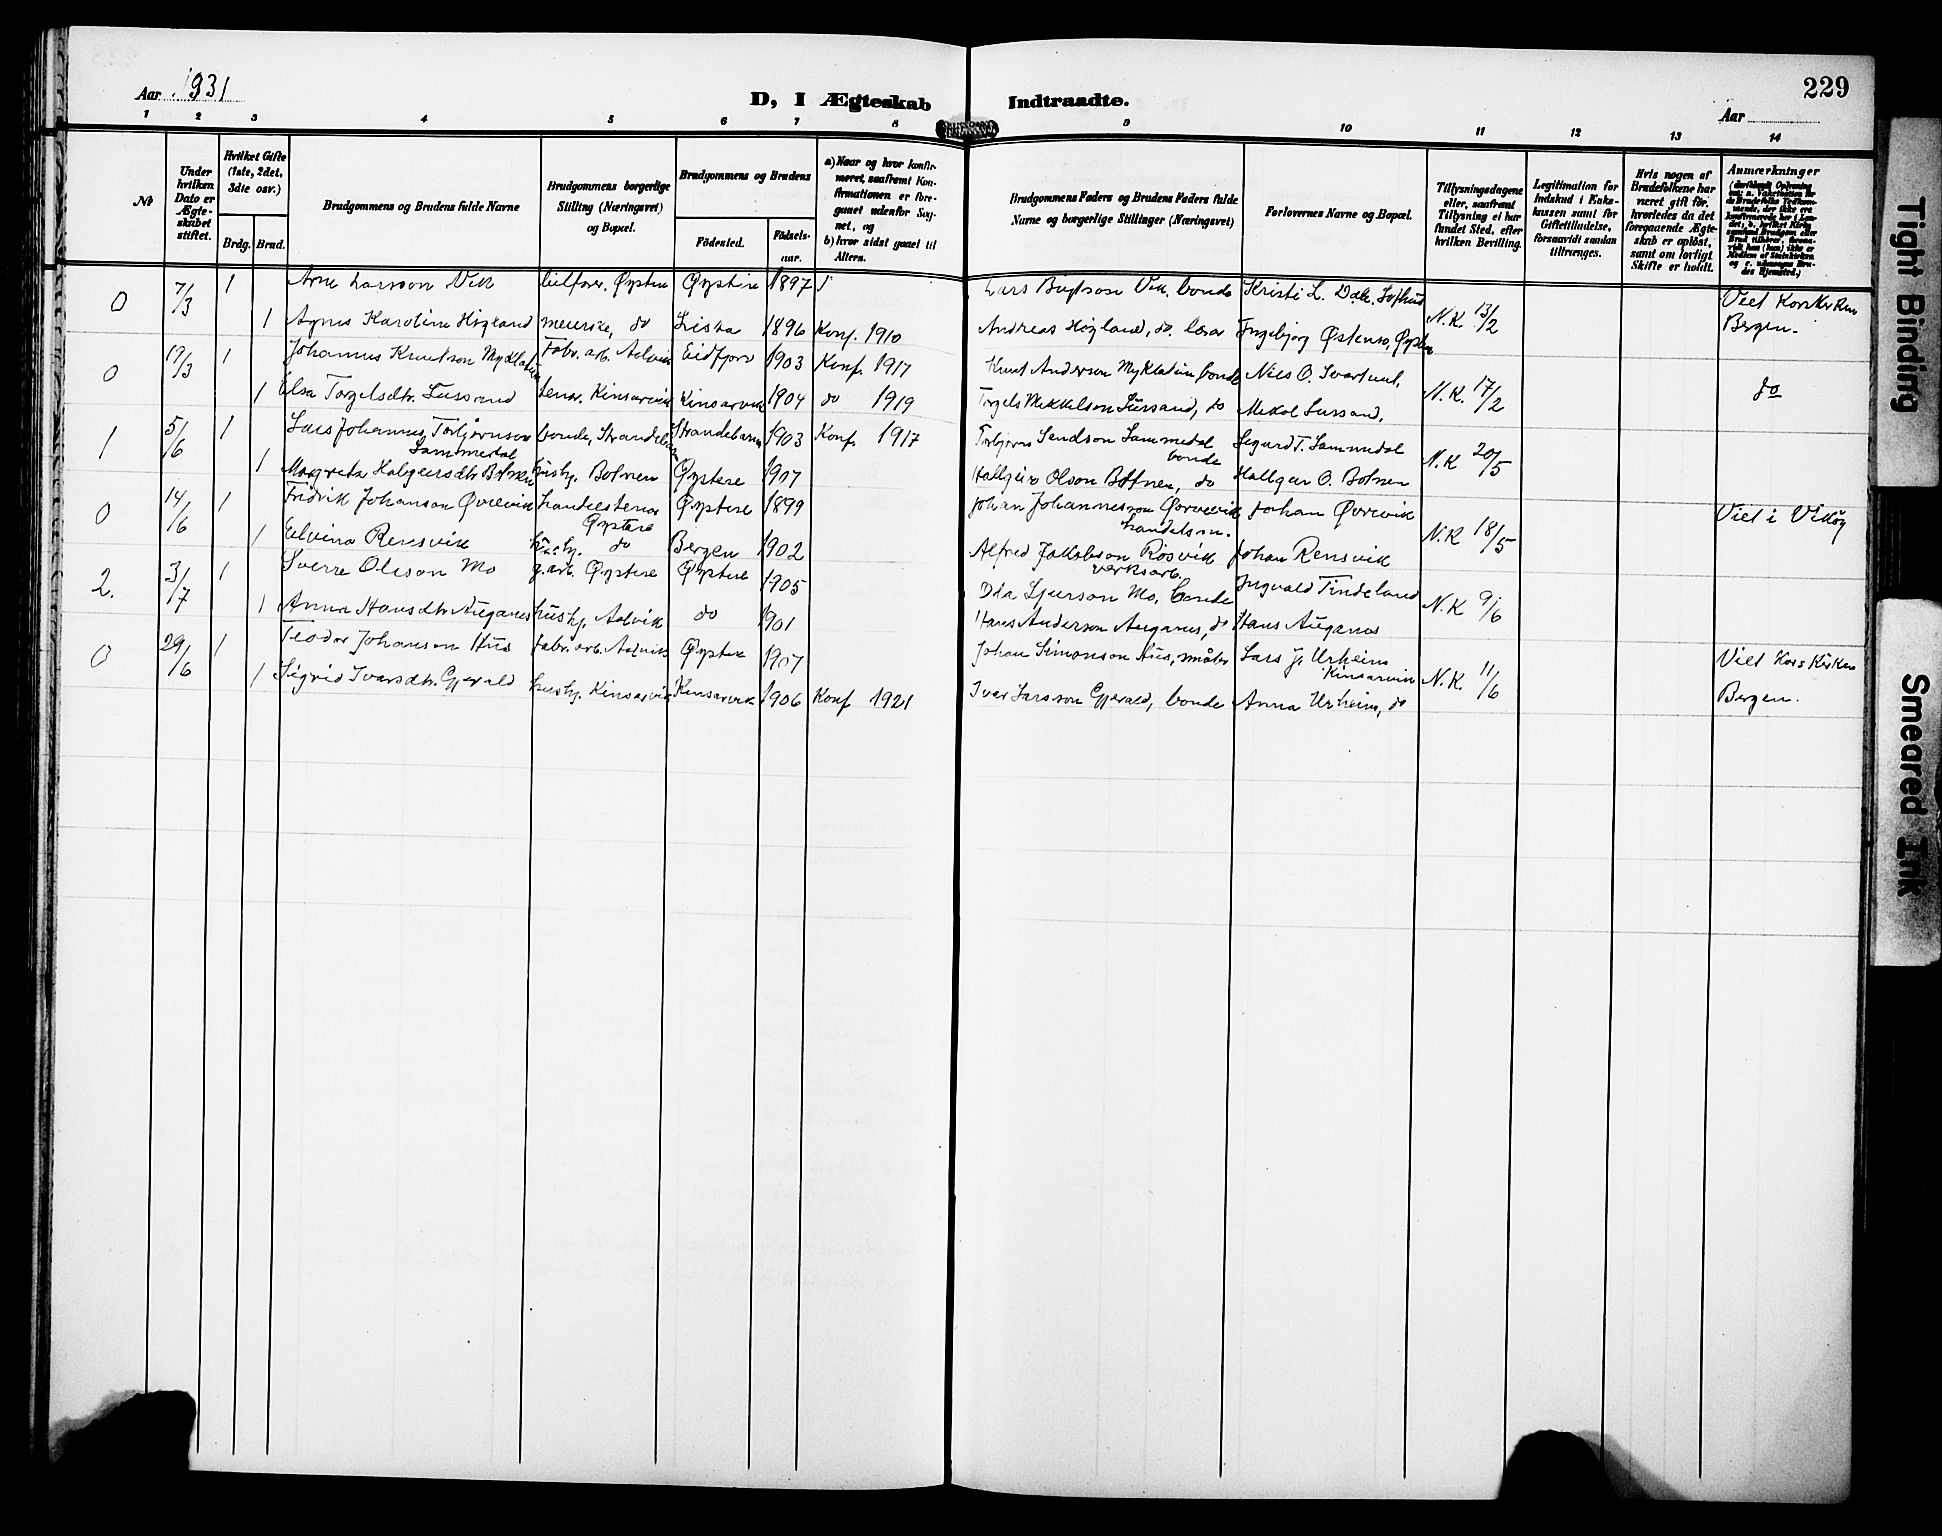 229
Aar 1931
D, I Ægteskab Indtraadte.
Aar
1 2 3 4 5 6 7 8 9 10 11 12 13 14
No
Under hvilken Dato er Ægteskabet stiftet.
Hvilket Gifte (1ste, 2det, 3die osv.)
Brdg. Brud.
Brudgommens og Brudens fulde Navne
Brudgommens borgerlige Stilling (Næringsvei) og Bopæl.
Brudgommens og Brudens
Fødested.
Fødselsaar.
a) Naar og hvor konfirmeret, saafremt Konfirmationen er foregaaet udenfor Sognet, og
b) hvor sidst gaaet til Alters.
Brudgommens Faders og Brudens Faders fulde Navne og borgerlige Stillinger (Næringsvei)
Forlovernes Navne og Bopæl.
Tillysningsdagene eller, saafremt Tillysning ei har fundet Sted, efter hvilken Bevilling.
Legitimation for Indskud i Enkekassen samt for Giftetilladelse, forsaavidt saadan tiltrænges.
Hvis nogen af Brudefolkene har været gift før, hvorledes da det foregaaende Ægteskab er opløst, samt om lovligt Skifte er holdt.
Anmærkninger
0 7/3 1 Arne Larsson Vik bilførar, Øystese Øystese 1897 Lars Vik, bonde Kristi L. N.K. 13/2 Viet Korskirken
1 Agnes Karoline Høyland meierske, do Lista 1896 Konf. 1910 Andreas Høyland, do. Ingebjørg Østensø, Bergen.
0 19/3 1 Johannes Knutson Myklatun Fabr. arb. Aalvik Eidfjord 1903 Konf. 1917 Knut Anderson Myklatun bonde Nils O. N.K. 17/2 do
1 Elsa Torgelsdtr. Lussand Kinsarvik Kinsarvik 1904 do 1919 Torgels Mikkelson Lussand, do Mikal Lussand,
1 5/6 1 Lars Johannes Torbjørnson Sammedal bonde, Strandebarm 1903 Konf 1917 Torbjørn Sammedal bonde Sigurd T. Sammedal N.K 20/5
1 Margreta Halgeirsdtr Botnen hushj. Botnen Øystese 1907 Hallgeir Olson Botnen, do Hallgeir O. Botnen
0 14/6 1 Fridrik Johanson Øvrevik Øystese Øystese 1899 Johan Johannesson Øvrevik handelsm. Johan Øvrevik N.K 18/5 Viet i Vikøy
1 Elvina hushj. do Bergen 1902 Alfred Jakobson verksarb. Johan
2. 3/7 1 Sverre Olsson Mo g.arb. Øystese Øystese 1905 Ola Sjurson Mo, bonde Ingvald Tindeland N.K 9/6
1 Anna Hansdtr Auganes hushj. Aalvik do 1901 Hans Anderson Auganes, do Hans Auganes
0 29/6 1 Teodor Johanson Hus Fabr. arb. Aalvik Øystese 1907 Johan Simonson Hus, Lars J. Urheim Kinsarvik N.K. 11/6 Viet Korskirken
1 Sigrid Ivarsdtr. Gjerald hushj. Kinsarvik Kinsarvik 1906 Konf 1921 Ivar Larsson Gjerald, bonde Anna Urheim, do Bergen.
Tight Binding
Smeared Ink